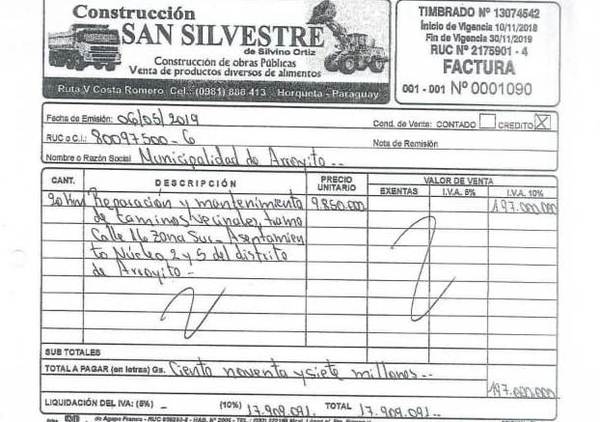 Construcción
SAN SILVESTRE
de Silvino Ortiz
Construcción de obras Públicas
Venta de productos diversos de alimentos
Ruta V Costa Romero Cel.: (0981) 886 413 - Horqueta - Paraguay
TIMBRADO Nº 13074542
Inicio de Vigencia 10/11/2018
Fin de Vigencia 30/11/2019
RUC Nº 2175901 - 4
FACTURA
001 - 001 Nº 0001090
Fecha de Emisión: 06/05/2019 Cond. de Venta: CONTADO CREDITO X
RUC o C.I.: 80097500-6 Nota de Remisión
Nombre o Razón Social Municipalidad de Arroyito --
CANT. DESCRIPCIÓN PRECIO UNITARIO VALOR DE VENTA
EXENTAS I.V.A. 5% I.V.A. 10%
20 Km Reparación y mantenimiento 9.850.000 197.000.000
de caminos vecinales, tramo
Calle 16 Zona Sur - Asentamien
to Núcleo 2 y 5 del distrito
de Arroyito -
SUB TOTALES
TOTAL A PAGAR (en letras) Gs. Ciento noventa y siete millones -- 197.000.000
LIQUIDACIÓN DEL IVA: (5%) - (10%) 17.909.091. TOTAL 17.909.091. --
de Agapo Franco - RUC